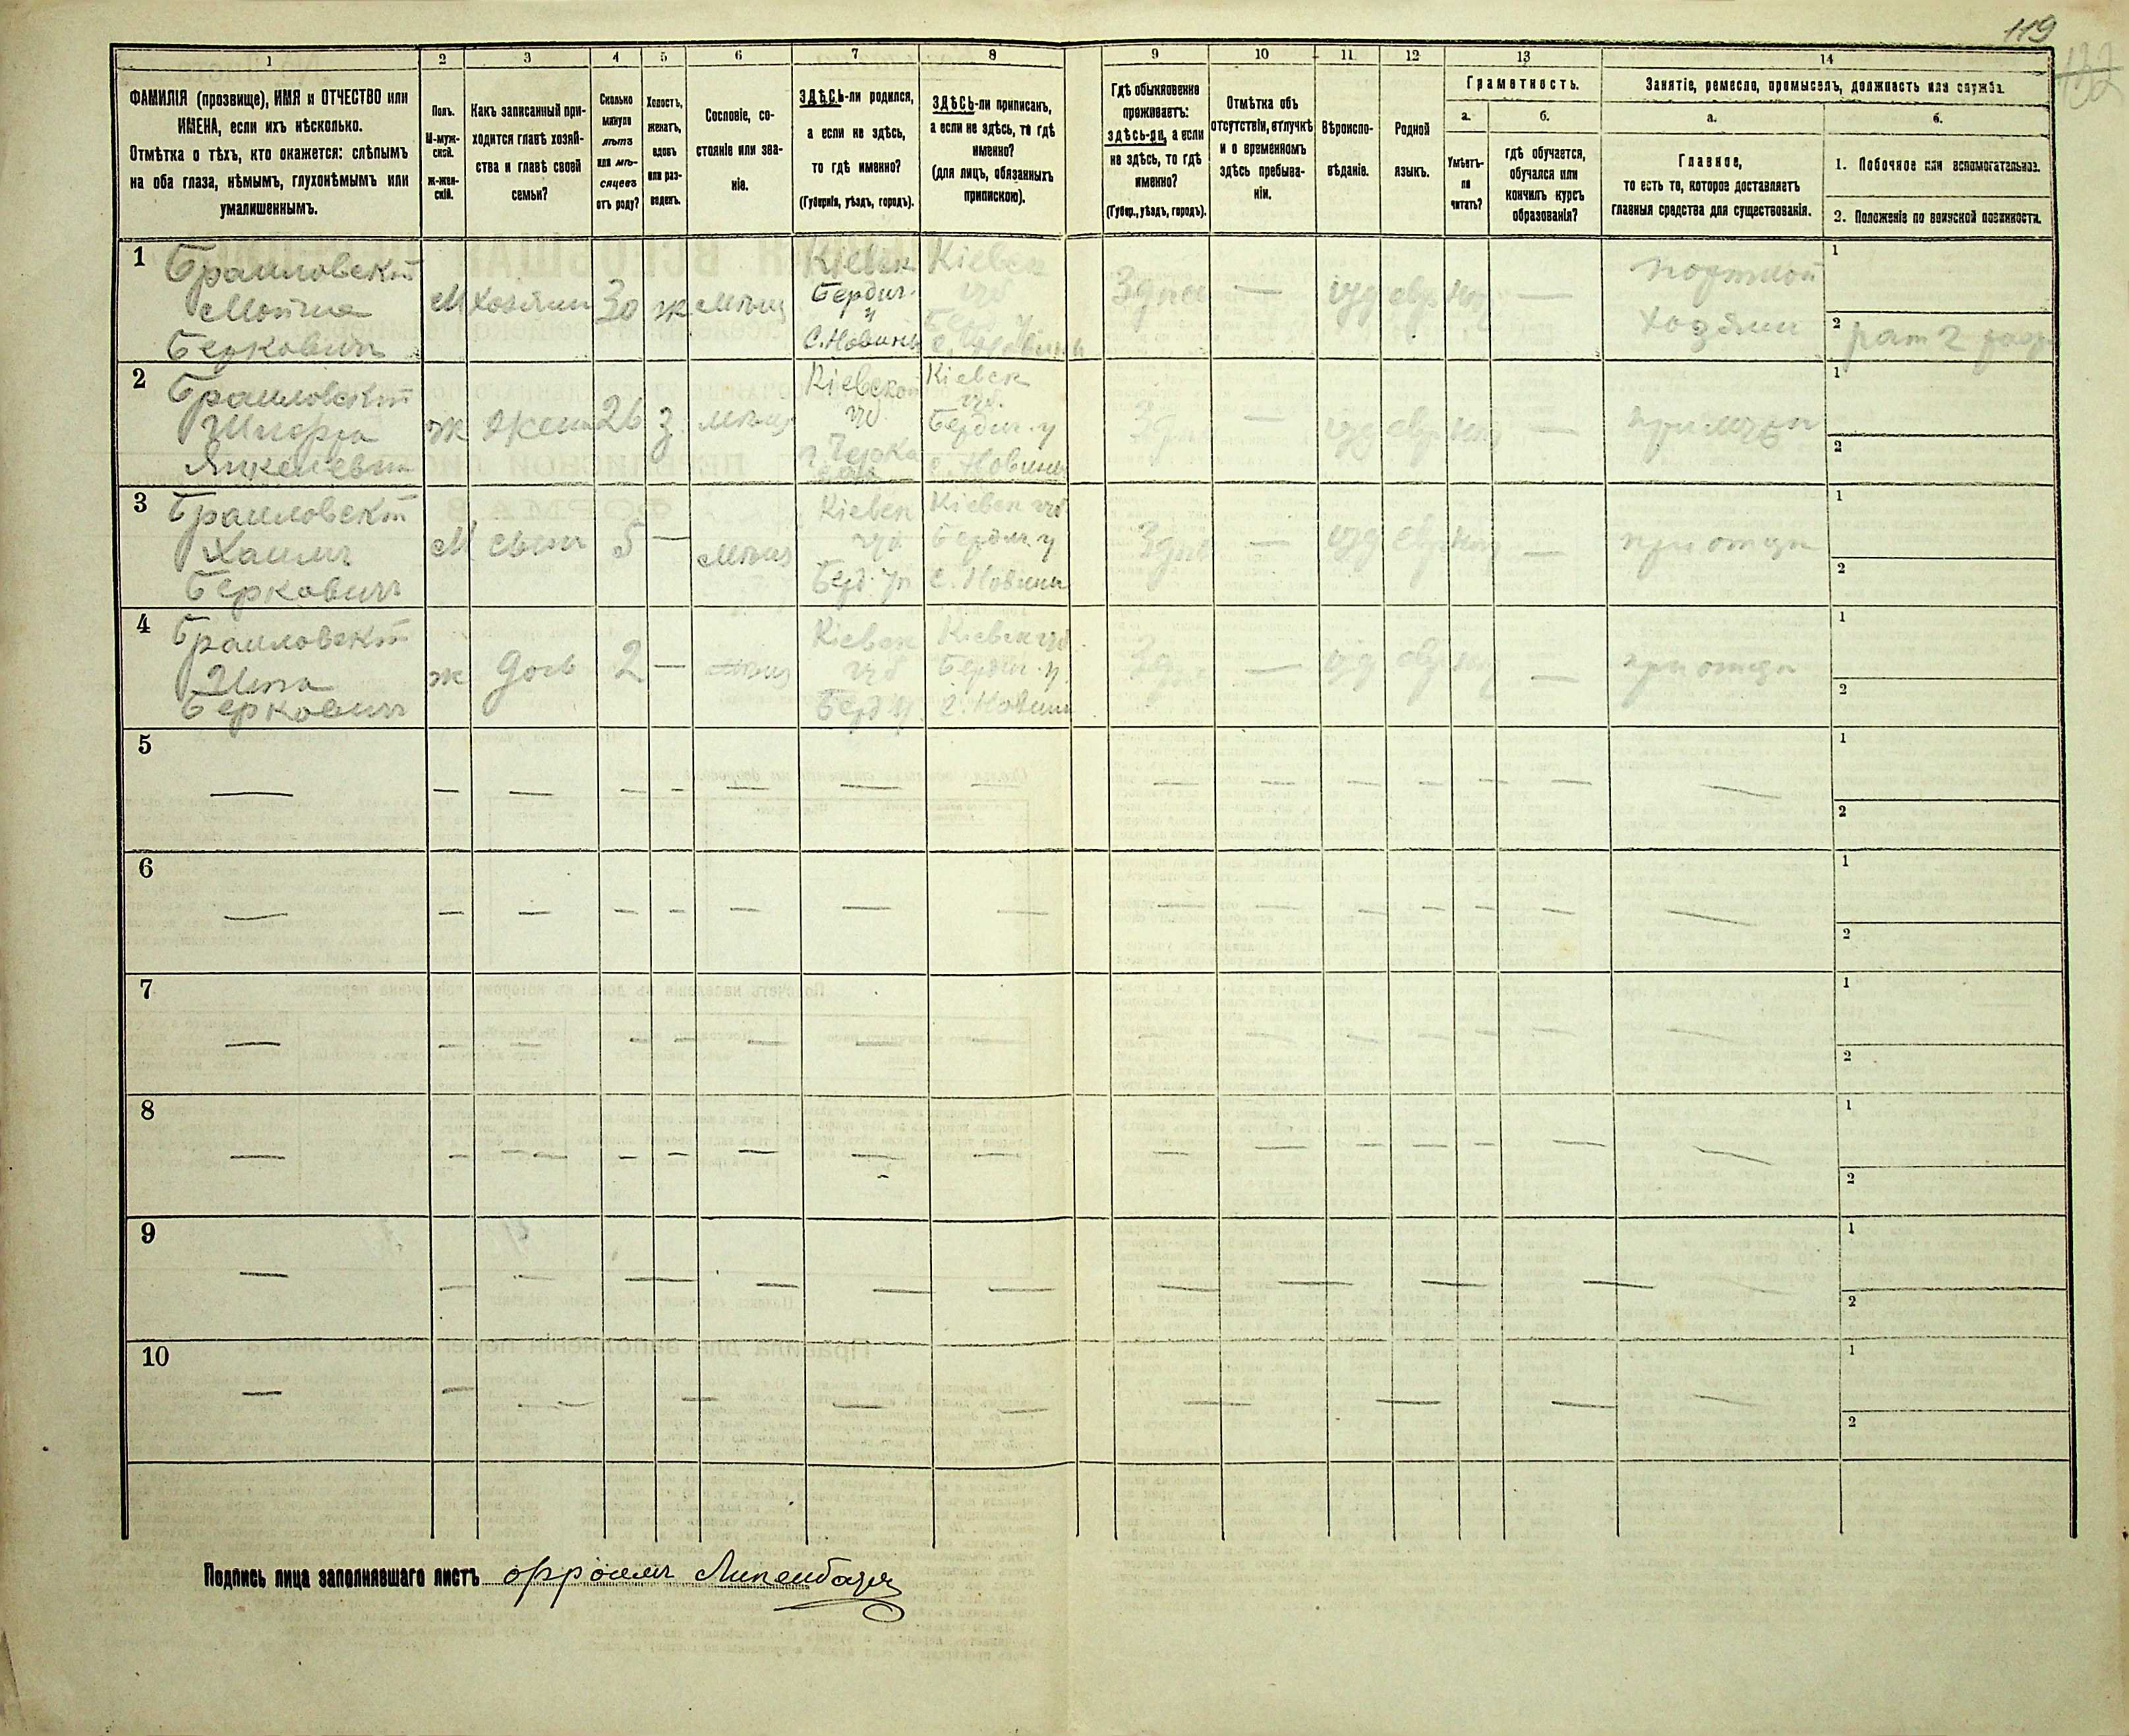 119
132
1
2
3
4
5
6
7
8
9
10
11
12
13
14
ФАМИЛІЯ (прозвище), ИМЯ и ОТЧЕСТВО или
ИМЕНА, если ихъ нѣсколько.
Отмѣтка о тѣхъ, кто окажется: слѣпымъ
на оба глаза, нѣмымъ, глухонѣмымъ или
умалишеннымъ.
Полъ.
М-муж-
ской.
ж-жен-
скій.
Какъ записанный при-
ходится главѣ хозяй-
ства и главѣ своей
семьи?
Сколько
минуло
лѣтъ
или мѣ-
сяцевъ
отъ роду?
Холостъ,
женатъ,
вдовъ
или раз-
веденъ.
Сословіе, со-
стояніе или зва-
ніе.
ЗДѢСЬ-ли родился,
а если не здѣсь,
то гдѣ именно?
(Губернія, уѣздъ, городъ).
ЗДѢСЬ-ли приписанъ,
а если не здѣсь, то гдѣ
именно?
(для лицъ, обязанныхъ
припискою).
Гдѣ обыкновенно
проживаетъ:
здѣсь-ли, а если
не здѣсь, то гдѣ
именно?
(Губер., уѣздъ, городъ).
Отмѣтка объ
отсутствіи, отлучкѣ
и о временномъ
здѣсь пребыва-
ніи.
Вѣроиспо-
вѣданіе.
Родной
языкъ.
Грамотность.
а.
б.
Умѣетъ-
ли
читать?
гдѣ обучается,
обучался или
кончилъ курсъ
образованія?
Занятіе, ремесло, промыселъ, должность или служба.
а.
б.
Главное,
то есть то, которое доставляетъ
главныя средства для существованія.
1. Побочное или вспомогательное.
2. Положеніе по воинской повинности.
1
Браиловскій
Мошка
Берковичъ
М
хозяинъ
30
ж
мѣщ
Кіевск
Бердич.
у
с. Новины
Кіевск
губ
Берд. у
с. Новины
Здѣсь
—
іуд
евр
—
портной
хозяинъ
1
2
рат 2 разр
2
Браиловскій
Янкелевна
ж
жена
26
з
мѣщ
Кіевской
губ
Кіевск
губ.
Бердич. у
с. Новины
Здѣсь
—
іуд
евр
—
при мужѣ
1
2
3
Браиловскій
Хаимъ
Берковичъ
М
сынъ
5
—
мѣщ
Кіевск
губ
Берд. у
Кіевск губ
Бердич. у
с. Новины
Здѣсь
—
іуд
евр
—
при отцѣ
1
2
4
Браиловскій
Берковичъ
ж
дочь
2
—
мѣщ
Кіевск
губ
Берд. у.
Кіевск губ
Бердич. у.
с. Новины
Здѣсь
—
іуд
евр
—
при отцѣ
1
2
5
1
2
6
1
2
7
1
2
8
1
2
9
1
2
10
1
2
Подпись лица заполнявшаго листъ